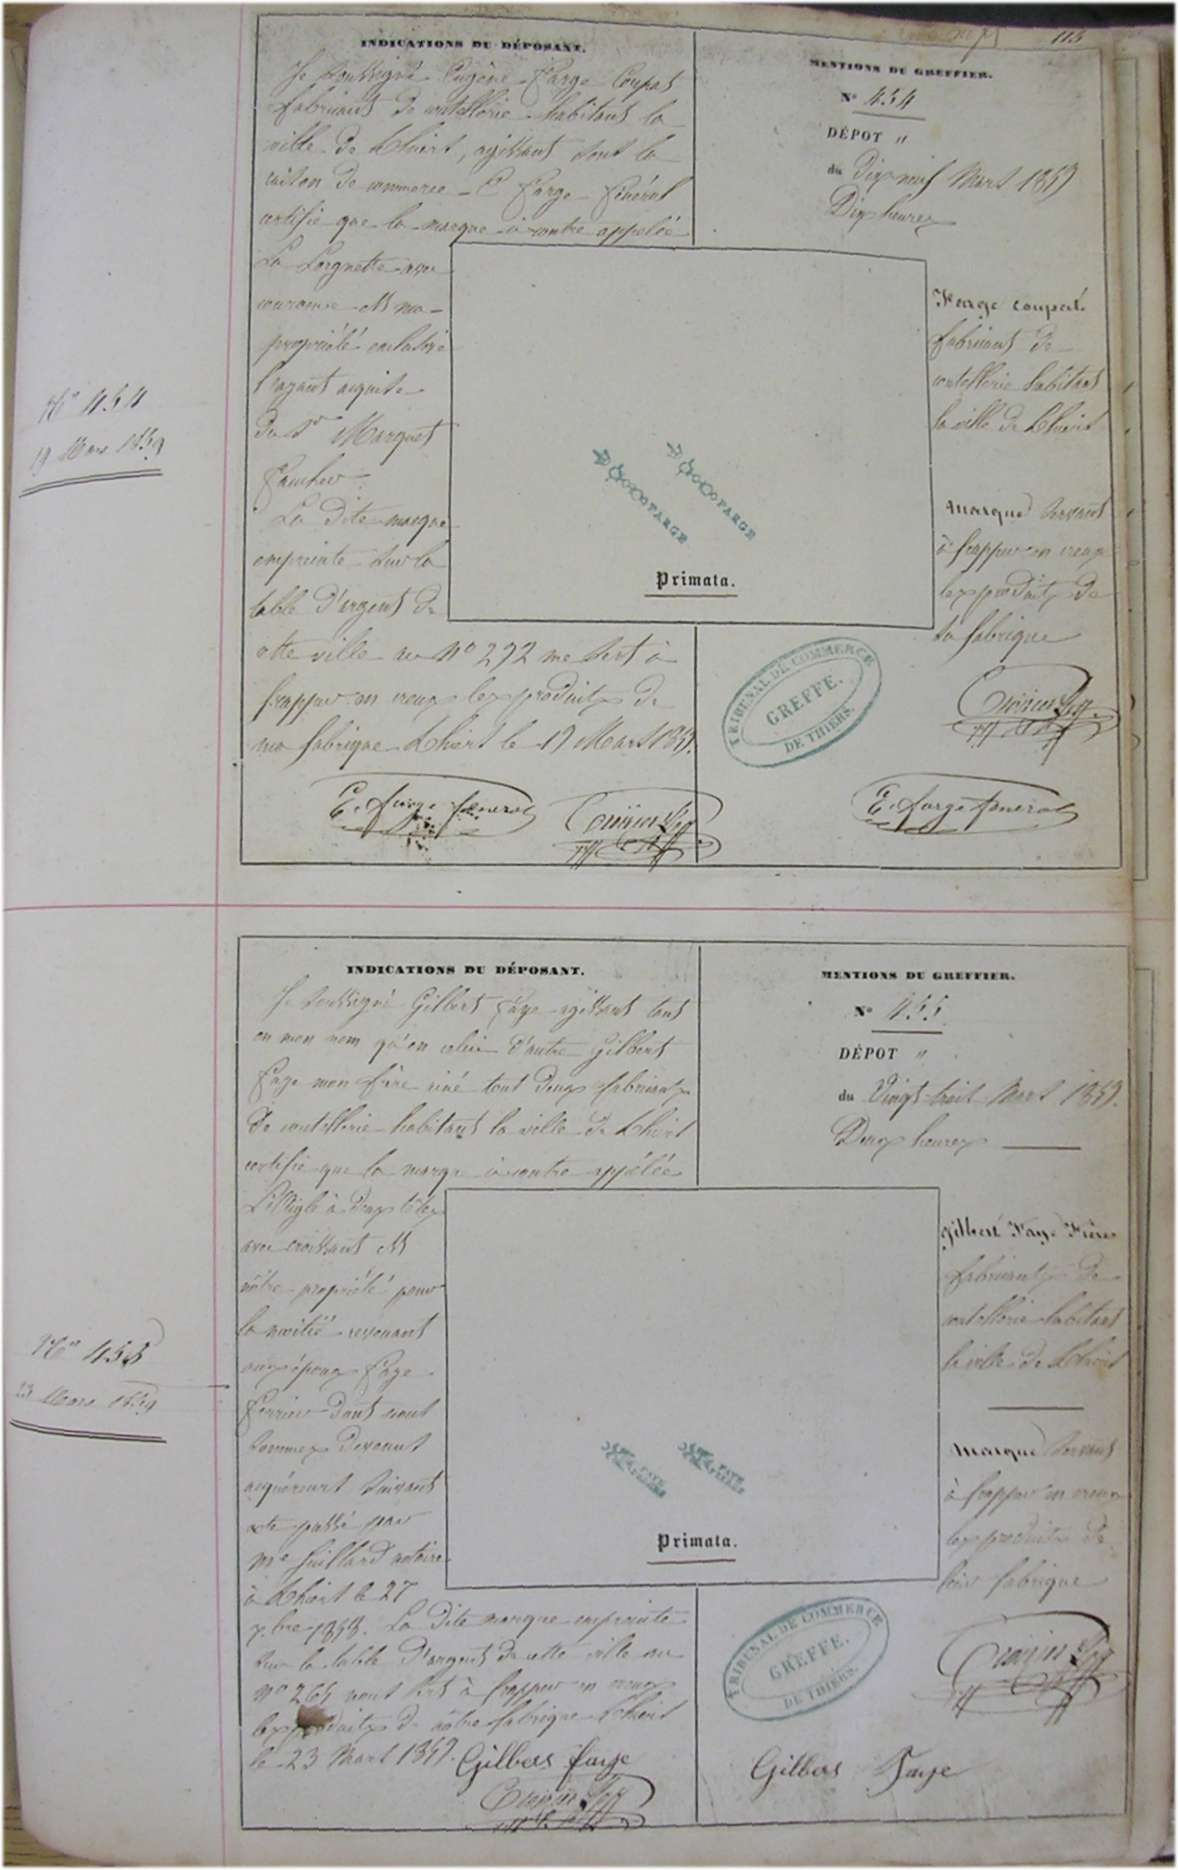 113
INDICATIONS DU DÉPOSANT.
Je soussigné Eugène Farge Coupat
fabricant de coutellerie habitant la
ville de Thiers, agissant sous la
raison de commerce E Farge Fénérol
certifie que la marque ci contre appelée
La Lorgnette avec
couronne est ma
propriété exclusive
l'ayant acquise
du Sr Marquet
Faucher
La dite marque
empreinte sur la
table d'argent de
cette ville au No 292 me sert à
frapper en creux les produits de
ma fabrique Thiers le 19 Mars 1859.
E. farge fenerol
MENTIONS DU GREFFIER.
No 454
DÉPOT "
du Dix neuf Mars 1859
Dix heures
Farge coupat
fabricant de
coutellerie habitant
la ville de Thiers
marque servant
à frapper en creux
les produits de
sa fabrique
E. farge fenerol
FARGE
FARGE
Primata.
TRIBUNAL DE COMMERCE
GREFFE.
DE THIERS.
No 454
19 Mars 1859
INDICATIONS DU DÉPOSANT.
Je soussigné Gilbert Faye agissant tant
en mon nom qu'en celui d'autre Gilbert
Faye mon frère ainé tout deux fabricants
de coutellerie habitant la ville de Thiers
certifie que la marque ci contre appelée
L'Aigle à deux têtes
avec croissant est
nôtre propriété pour
la moitié revenant
aux époux Faye
Ferrier dont nous
sommes devenus
acquéreurs suivant
acte passé par
Me notaire
à Thiers le 27
7bre 1858. La dite marque empreinte
sur la table d'argent de cette ville au
No 265 nous sert à frapper en creux
les produits de nôtre fabrique Thiers
le 23 Mars 1859. Gilbers faye
MENTIONS DU GREFFIER.
No 455
DÉPOT "
du Vingt trois Mars 1859.
Deux heures
gilbert Faye Frères
fabricants de
coutellerie habitant
la ville de Thiers
marque servant
à frapper en creux
les produits de
leur fabrique
Gilbers Faye
Primata.
TRIBUNAL DE COMMERCE
GREFFE.
DE THIERS.
No 455
23 Mars 1859